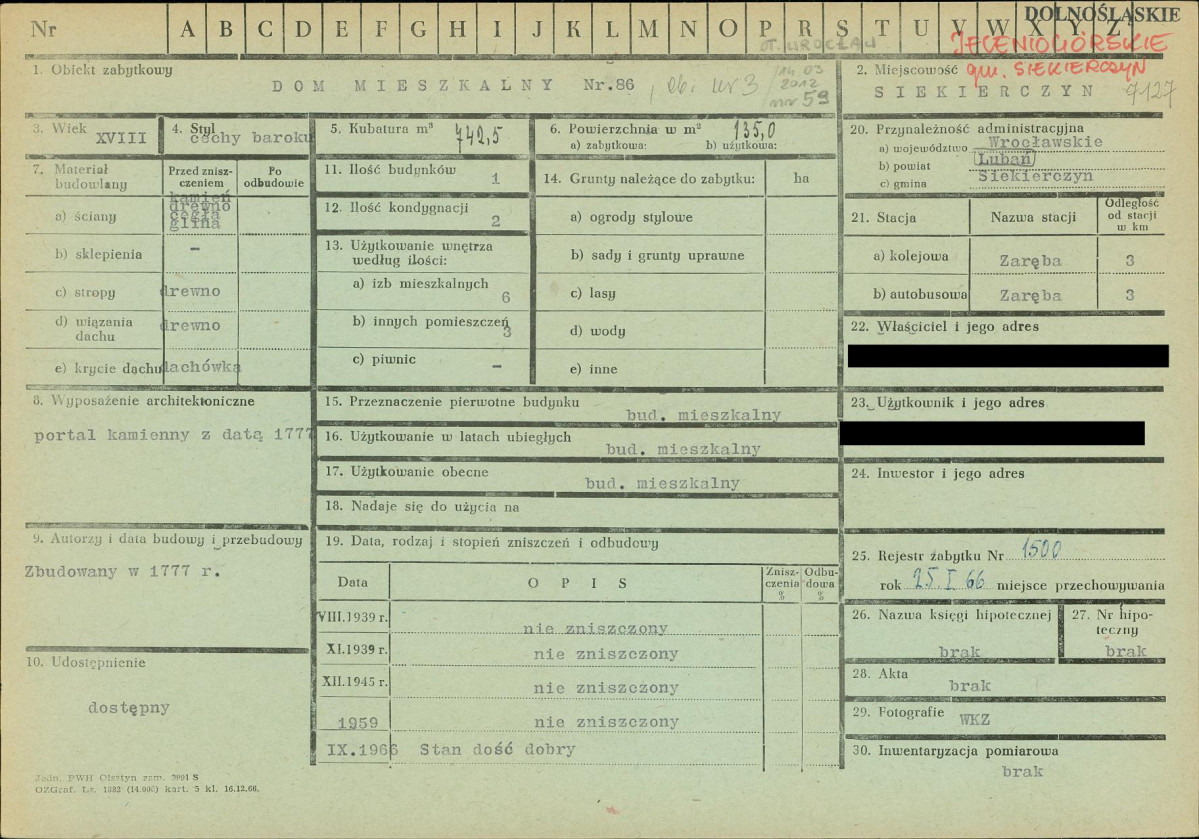 Nr A B C D E F G H I J K L M N O P R S T U V W X Y Z DOLNOŚLĄSKIE
ot. WROCŁAW JELENIOGÓRSKIE
gm. SIEKIERCZYN
1. Obiekt zabytkowy
DOM MIESZKALNY Nr.86, ob. nr 3
14.03
2012
nr 59
2. Miejscowość
SIEKIERCZYN 7127
3. Wiek
XVIII
4. Styl
cechy baroku
5. Kubatura m³ 742,5
6. Powierzchnia w m² 135,0
a) zabytkowa: b) użytkowa:
7. Materiał budowlany
Przed zniszczeniem
Po odbudowie
a) ściany
kamień
drewno
cegła
glina
b) sklepienia –
c) stropy drewno
d) wiązania dachu drewno
e) krycie dachu dachówka
8. Wyposażenie architektoniczne
portal kamienny z datą 1777
9. Autorzy i data budowy i przebudowy
Zbudowany w 1777 r.
10. Udostępnienie
dostępny
11. Ilość budynków 1
12. Ilość kondygnacji 2
13. Użytkowanie wnętrza
według ilości:
a) izb mieszkalnych 6
b) innych pomieszczeń 3
c) piwnic –
14. Grunty należące do zabytku: ha
a) ogrody stylowe
b) sady i grunty uprawne
c) lasy
d) wody
e) inne
15. Przeznaczenie pierwotne budynku
bud. mieszkalny
16. Użytkowanie w latach ubiegłych
bud. mieszkalny
17. Użytkowanie obecne
bud. mieszkalny
18. Nadaje się do użycia na
19. Data, rodzaj i stopień zniszczeń i odbudowy
Data OPIS Zniszczenia % Odbudowa %
VIII.1939 r. nie zniszczony
XI.1939 r. nie zniszczony
XII.1945 r. nie zniszczony
1959 nie zniszczony
IX.1966 Stan dość dobry
20. Przynależność administracyjna
a) województwo Wrocławskie
b) powiat Lubań
c) gmina Siekierczyn
21. Stacja Nazwa stacji Odległość od stacji w km
a) kolejowa Zaręba 3
b) autobusowa Zaręba 3
22. Właściciel i jego adres
23. Użytkownik i jego adres
24. Inwestor i jego adres
25. Rejestr zabytku Nr 1500
rok 25.I.66 miejsce przechowywania
26. Nazwa księgi hipotecznej
brak
27. Nr hipoteczny
brak
28. Akta
brak
29. Fotografie WKZ
30. Inwentaryzacja pomiarowa
brak
Jedn. PWH Olsztyn zam. 3994 S
OZGraf. Lz. 1382 (14.000) kart. 5 kl. 16.12.66.